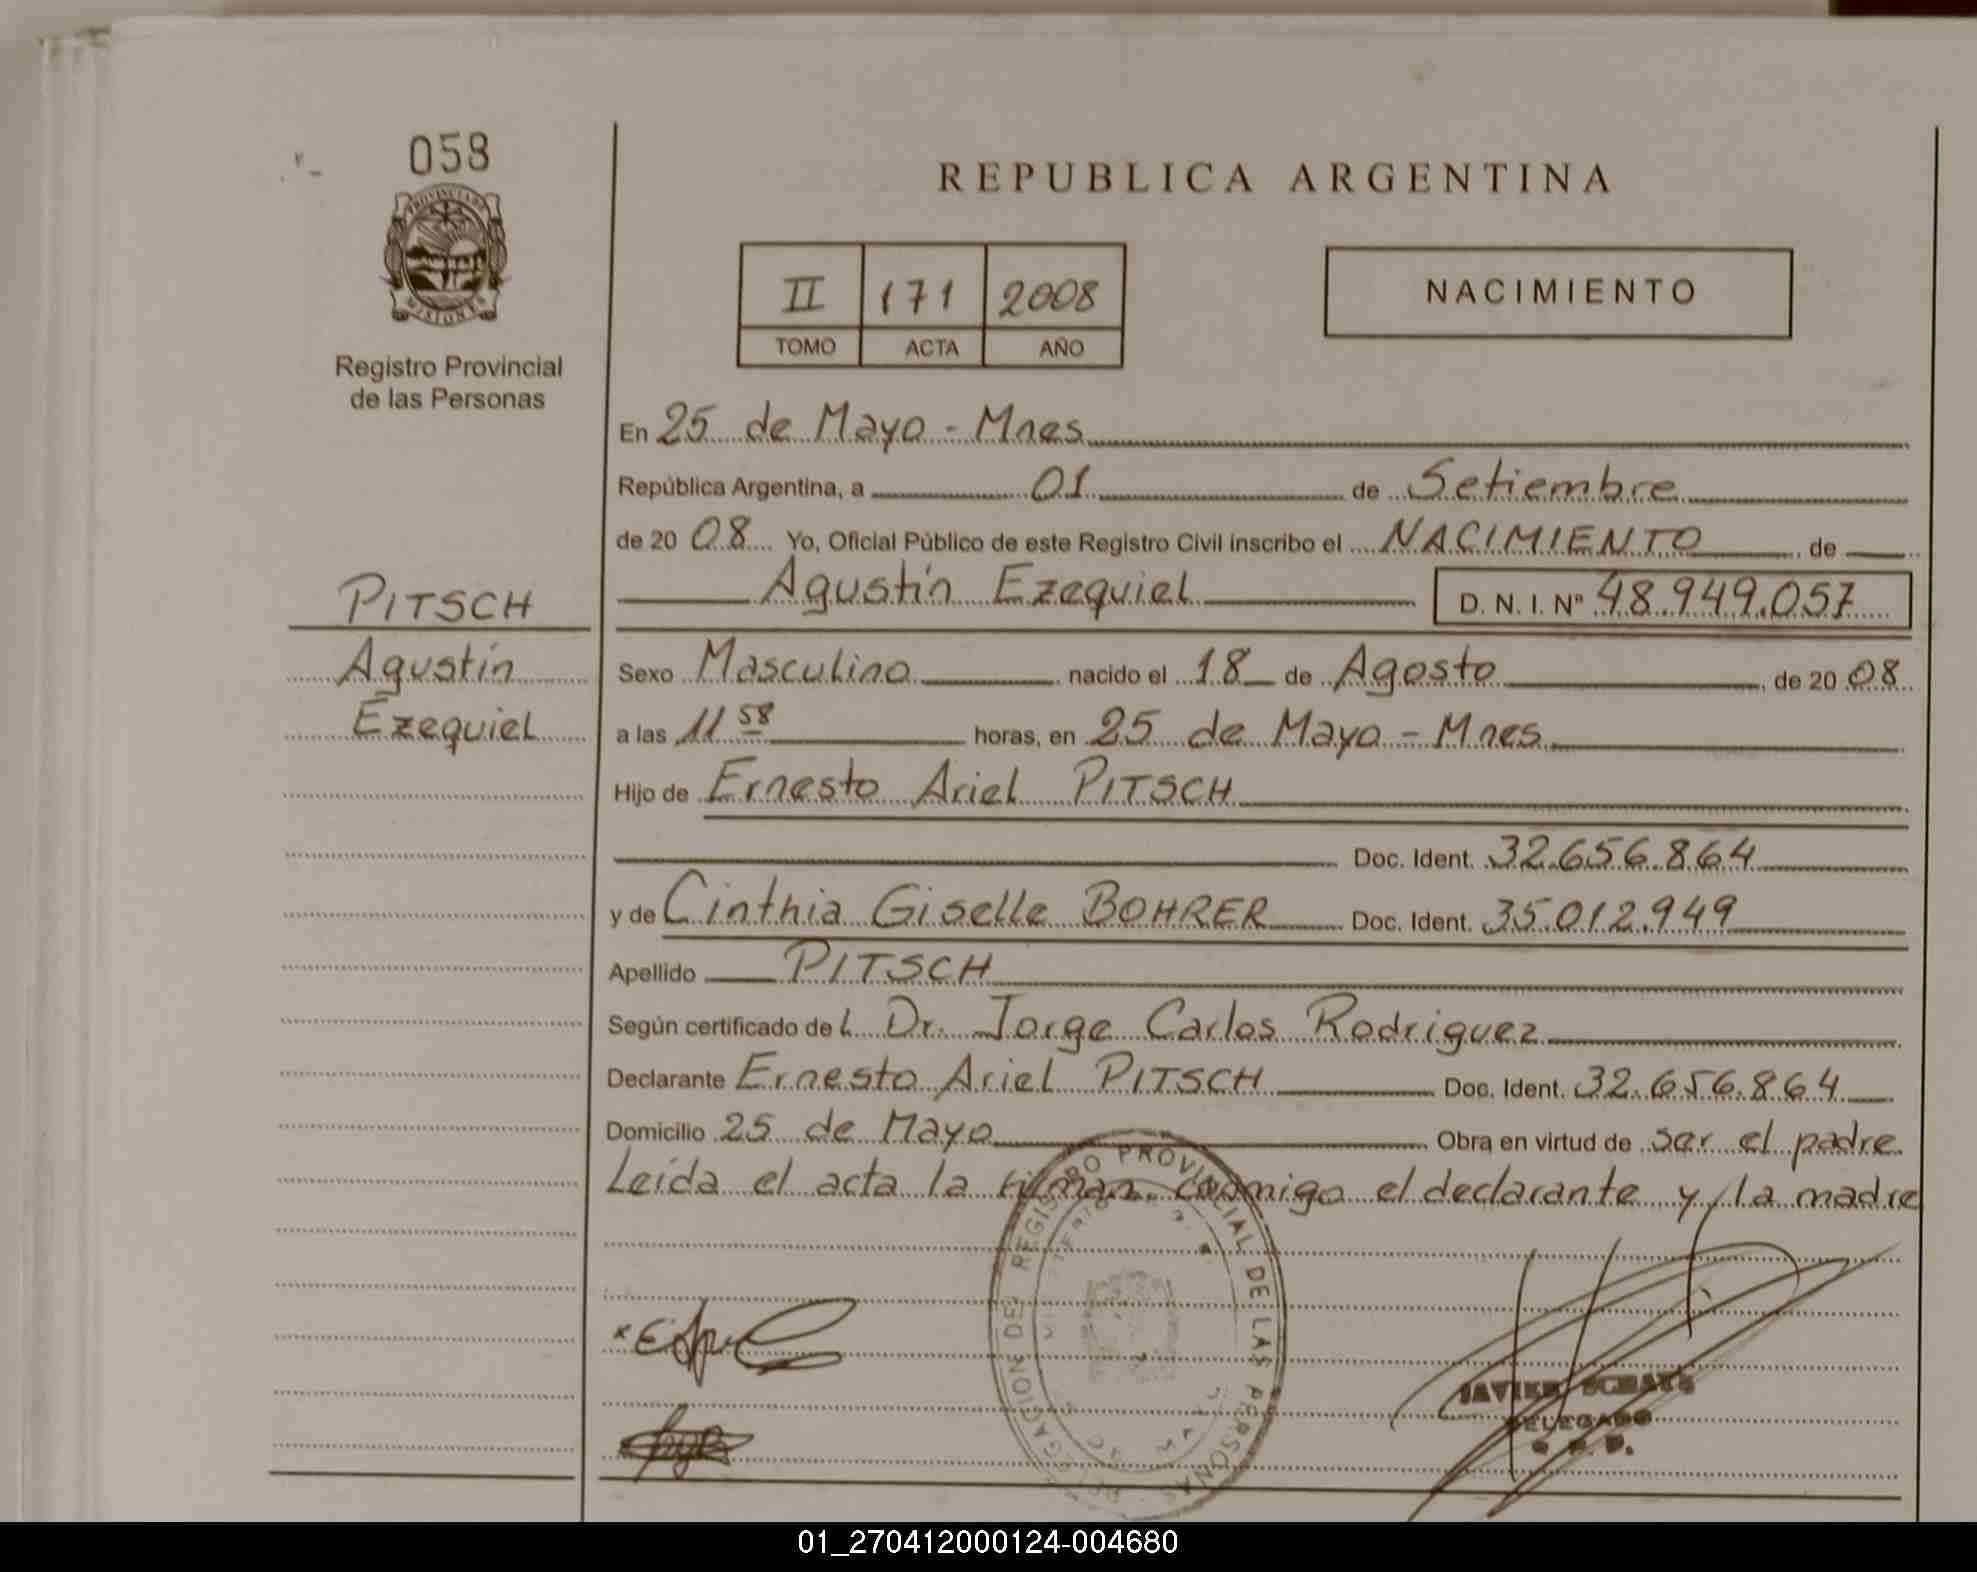 058
PROVINCIA DE
MISIONES
Registro Provincial
de las Personas
REPUBLICA ARGENTINA
II 171 2008
TOMO ACTA AÑO
NACIMIENTO
En 25 de Mayo - Mnes
República Argentina, a 01 de Setiembre
de 20 08 Yo, Oficial Público de este Registro Civil inscribo el NACIMIENTO de
Agustín Ezequiel D. N. I. Nº 48.949.057
PITSCH
Agustín
Ezequiel
Sexo Masculino nacido el 18 de Agosto de 20 08
a las 11 58 horas, en 25 de Mayo - Mnes
Hijo de Ernesto Ariel PITSCH
Doc. Ident. 32.656.864
y de Cinthia Giselle BOHRER Doc. Ident. 35.012.949
Apellido PITSCH
Según certificado del Dr. Jorge Carlos Rodriguez
Declarante Ernesto Ariel PITSCH Doc. Ident. 32.656.864
Domicilio 25 de Mayo Obra en virtud de ser el padre
Leída el acta la firman conmigo el declarante y la madre
DELEGACION DEL REGISTRO PROVINCIAL DE LAS PERSONAS
JAVIER
DELEGADO
01_270412000124-004680